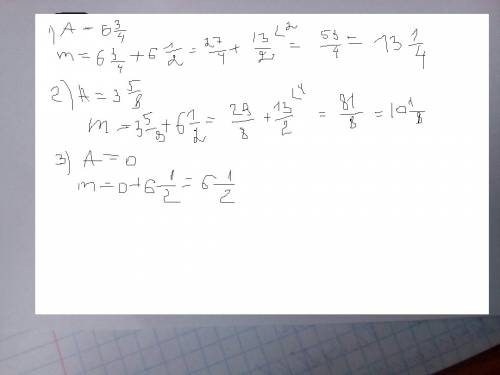 1) A = 6 3/4
m = 6 3/4 + 6 1/2 = 27/4 + 13/2 ∟2 = 53/4 = 13 1/4
2) A = 3 5/8
m = 3 5/8 + 6 1/2 = 29/8 + 13/2 ∟4 = 81/8 = 10 1/8
3) A = 0
m = 0 + 6 1/2 = 6 1/2